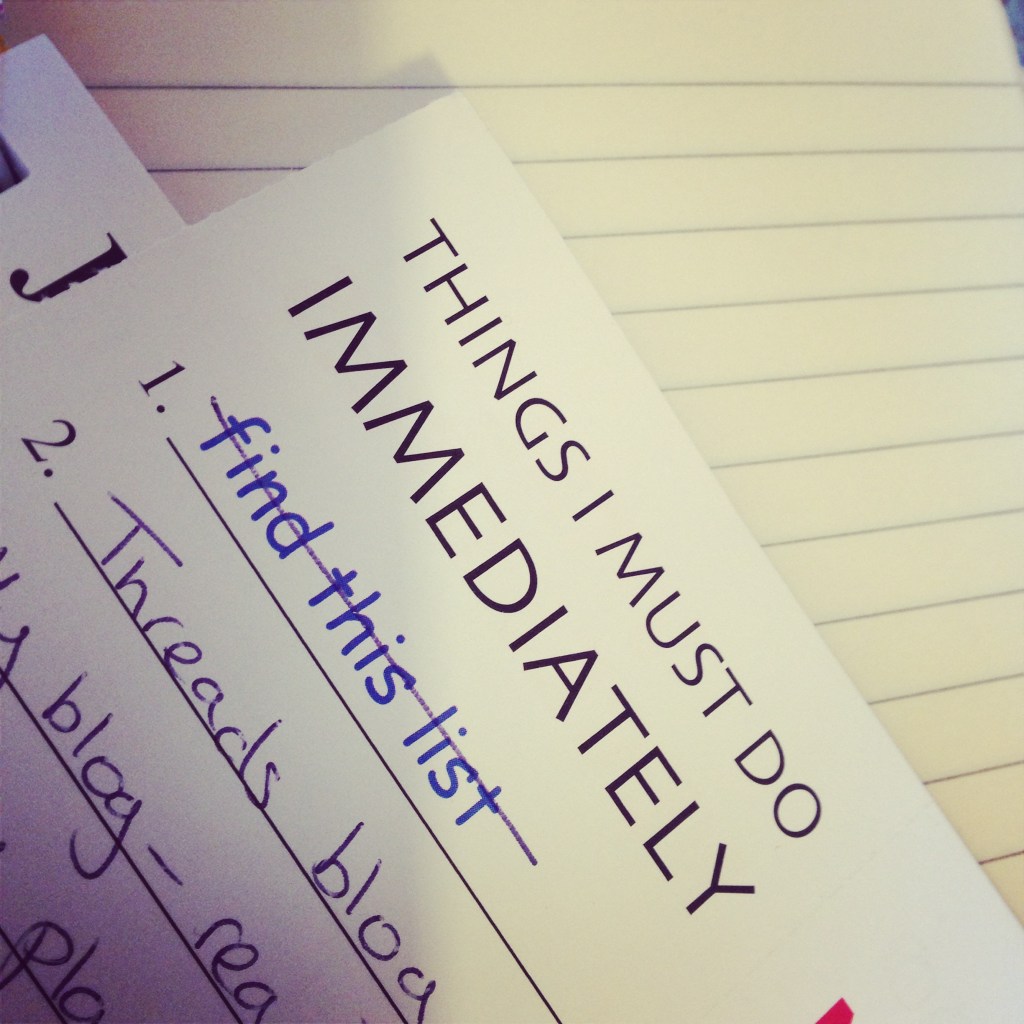 THINGS I MUST DO
IMMEDIATELY
1. find this list
2. Threads blog
blog - rea
J